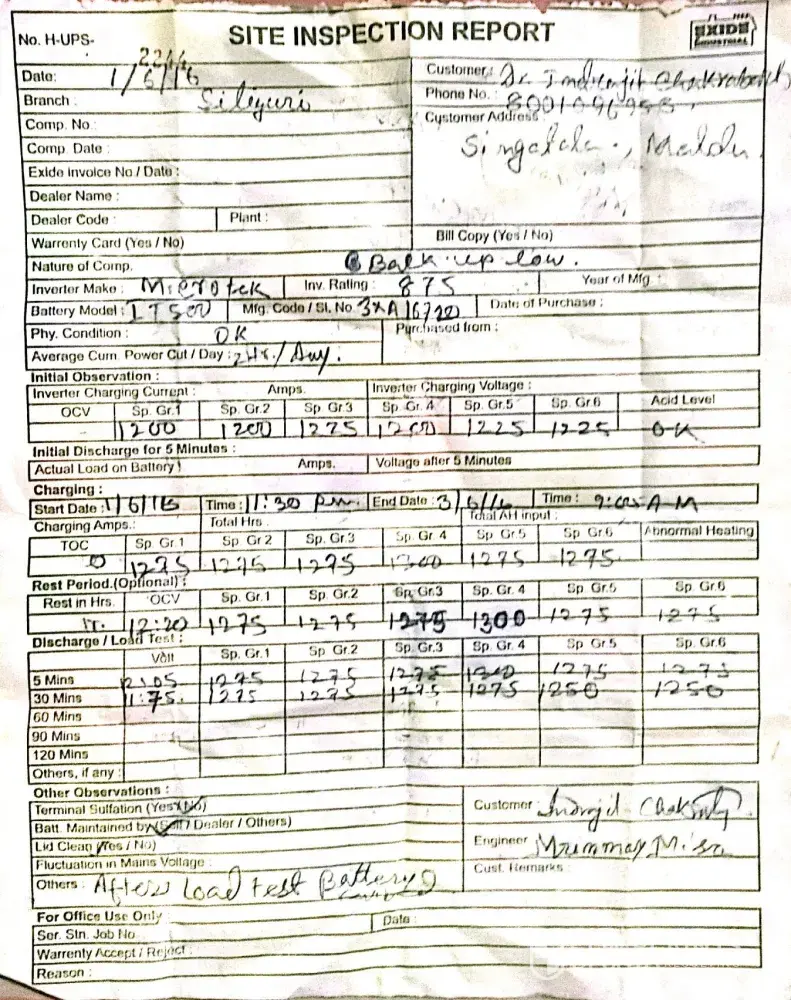 SITE INSPECTION REPORT
EXIDE
INDUSTRIAL
No. H-UPS-
Date: 1/6/16
Customer: Dr. Indranjit Chakraborty
Phone No.
Branch : Siliguri
Customer Address
Comp. No.
Singatala., Malda.
Comp. Date :
Exide Invoice No / Date :
Dealer Name :
Dealer Code : Plant :
Warrenty Card (Yes / No) Bill Copy (Yes / No)
Nature of Comp. Back up low.
Inverter Make : Microtek Inv. Rating : 875 Year of Mfg :
Battery Model : IT500 Mfg. Code / Sl. No. 3XA16720 Date of Purchase :
Phy. Condition : OK Purchased from :
Average Cum. Power Cut / Day : 2Hr./Day.
Initial Observation :
Inverter Charging Current : Amps. Inverter Charging Voltage :
OCV Sp. Gr.1 Sp. Gr.2 Sp. Gr.3 Sp. Gr. 4 Sp. Gr.5 Sp. Gr.6 Acid Level
1200 1200 1225 1200 1225 1225 O-K
Initial Discharge for 5 Minutes :
Actual Load on Battery : Amps. Voltage after 5 Minutes
Charging :
Start Date : 1/6/16 Time : 11:30 P.m. End Date : 3/6/16 Time : 9:00 A-M
Charging Amps.: Total Hrs. Total AH input :
TOC Sp. Gr.1 Sp. Gr.2 Sp. Gr.3 Sp. Gr. 4 Sp. Gr.5 Sp. Gr.6 Abnormal Heating
1275 1275 1275 1300 1275 1275
Rest Period.(Optional) :
Rest in Hrs. OCV Sp. Gr.1 Sp. Gr.2 Sp. Gr.3 Sp. Gr. 4 Sp. Gr.5 Sp. Gr.6
12:20 1275 1275 1275 1300 1275 1275
Discharge / Load Test :
Volt Sp. Gr.1 Sp. Gr.2 Sp. Gr.3 Sp. Gr. 4 Sp. Gr.5 Sp. Gr.6
5 Mins 12.05 1275 1275 1275 1300 1275 1275
30 Mins 11.75. 1275 1275 1275 1275 1250 1250
60 Mins
90 Mins
120 Mins
Others, if any :
Other Observations :
Terminal Sulfation (Yes / No)
Customer
Batt. Maintained by (Self / Dealer / Others)
Lid Clean (Yes / No)
Engineer
Fluctuation in Mains Voltage :
Cust. Remarks :
Others : After Load test Battery
For Office Use Only : Date :
Ser. Stn. Job No.
Warrenty Accept / Reject :
Reason :